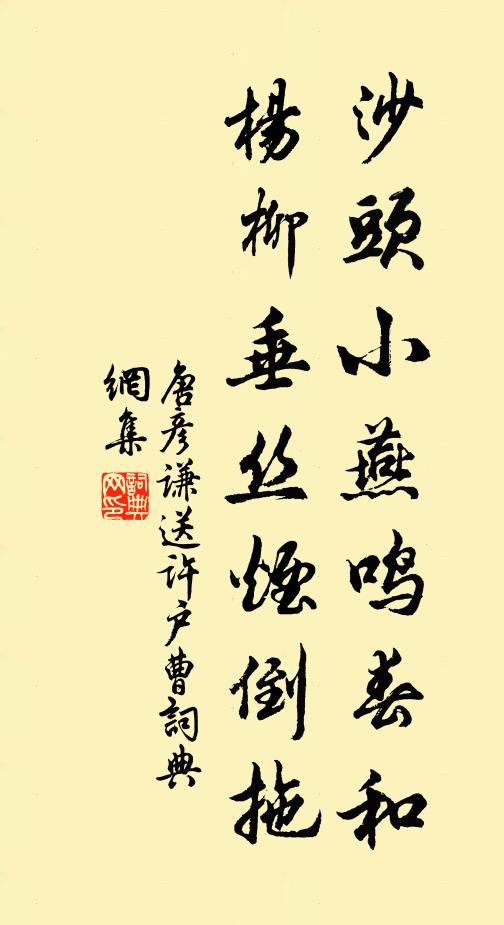 沙頭小燕鳴春和
楊柳垂丝煙倒拖
唐彦谦送许户曹詞典
網集
詞典
网印